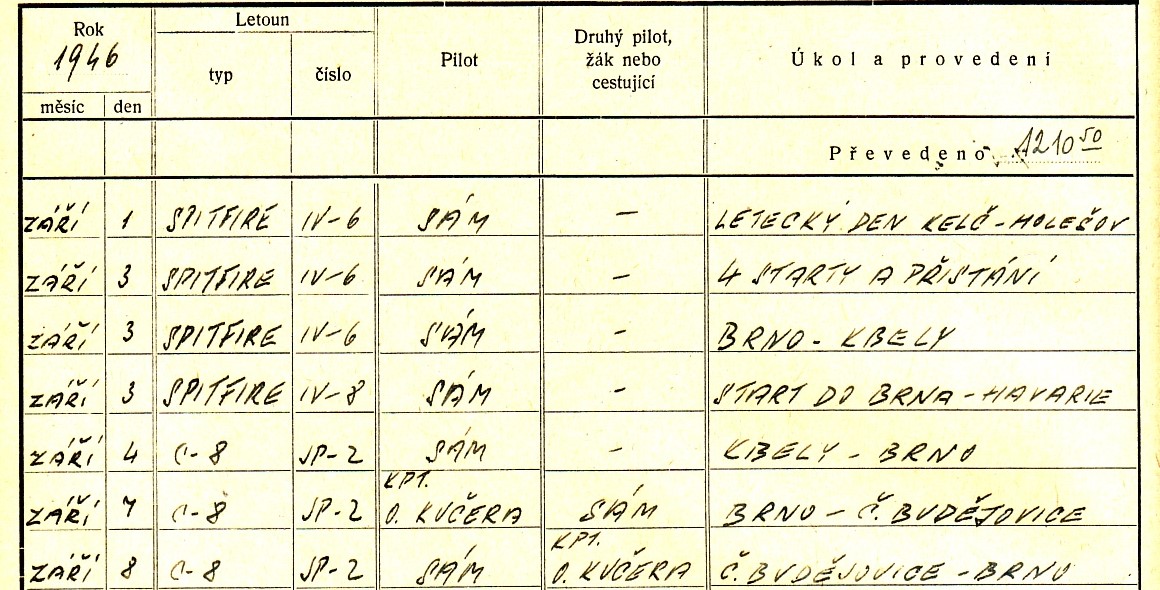 Rok 1946 Letoun Pilot Druhý pilot, žák nebo cestující Úkol a provedení
měsíc den typ číslo
Převedeno 1210 50
ZÁŘÍ 1 SPITFIRE IV-6 SÁM — LETECKÝ DEN KELČ-HOLEŠOV
ZÁŘÍ 3 SPITFIRE IV-6 SÁM — 4 STARTY A PŘISTÁNÍ
ZÁŘÍ 3 SPITFIRE IV-6 SÁM — BRNO - KBELY
ZÁŘÍ 3 SPITFIRE IV-8 SÁM — START DO BRNA - HAVARIE
ZÁŘÍ 4 C-8 JP-2 SÁM — KBELY - BRNO
ZÁŘÍ 7 C-8 JP-2 KPT. O. KUČERA SÁM BRNO - Č. BUDĚJOVICE
ZÁŘÍ 8 C-8 JP-2 SÁM KPT. O. KUČERA Č. BUDĚJOVICE - BRNO